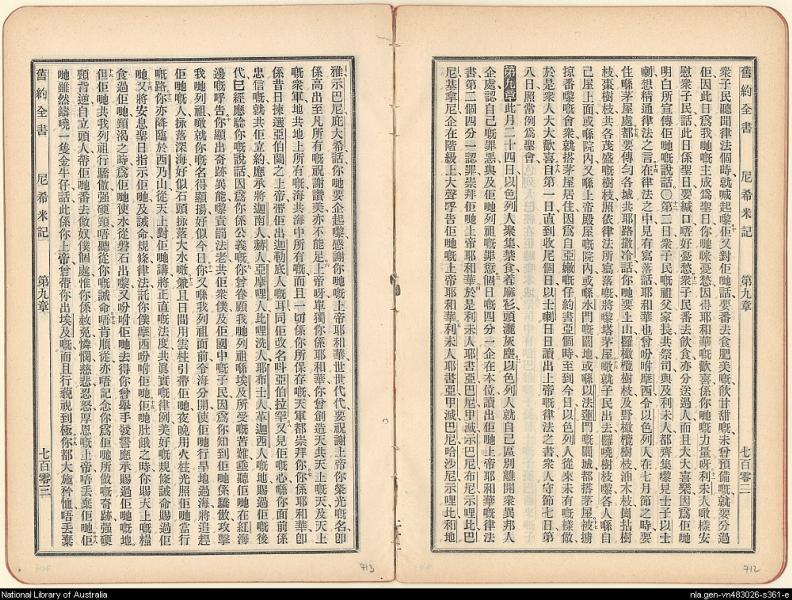 舊約全書 尼希米記 第九章 七百零二
衆子民聽聞律法個時就喊起嚟佢又對佢哋話要番去食肥美嘅飲甘甜嘅未曾預備嘅就要分過
佢因此日爲我哋嘅主成爲聖日你哋咪憂愁因得耶和華嘅歡喜係你哋嘅力量呀利未人噉樣安
慰衆子民話此日係聖日要緘口唔好憂愁衆子民番去飲食亦分送過人而且大大喜樂因爲佢哋
明白所宣傳佢哋嘅說話○第二日衆子民嘅祖父家長共祭司與及利未人都齊集嚟見士子以士
喇想精通律法之言在律法之中見有寫落話耶和華也曾吩咐摩西令以色列人在七月節之時要
住喺茅屋處都要傳勻各城共耶路撒冷話你哋要上山攞橄欖樹枝及野橄欖樹枝油木枝崗拈樹
枝棗樹枝共各茂盛嘅樹枝照依律法所寫落嘅將嚟搭茅屋嗽就子民出去攞嘵樹枝嚟各人喺自
己屋上或喺院內又喺上帝殿屋嘅院內或喺水門嘅闊地或喺以法蓮門嘅闊城都搭茅屋被擄
掠番嚟嘅會衆就搭茅屋居住因爲自亞嫩嘅仔約書亞個時至到今日以色列人從來未有噉樣做
於是衆人大大歡喜自第一日直到收尾個日以士喇日日讀出上帝嘅律法之書衆人守節七日第
八日照常例爲聖會
第九章此月二十四日以色列人聚集禁食着麻衫頭灑灰塵以色列人就自己區別離開衆異邦人
企處認自己嘅罪惡與及佢哋列祖嘅罪愆個日嘅四分一企在本位讀出佢哋上帝耶和華嘅律法
書第二個四分一認罪崇拜佢哋上帝耶和華於是利未人耶書亞巴尼甲滅示巴尼布尼示哩比巴
尼基拿尼企在階級上大聲呼告佢哋嘅上帝耶和華利未人耶書亞甲滅巴尼哈沙尼示哩比和地
712
雅示巴尼庇大希話你哋要企起嚟感謝你哋嘅上帝耶和華世世代代要祝謝上帝你榮光嘅名卽
係高出至凡所有嘅祝謝讚美亦不能足上帝呀單獨你係耶和華你曾創造天共天上嘅天及天上
嘅衆軍地共地上所有嘅海共海中所有嘅而且一切係你所保存嘅天軍都崇拜你你係耶和華卽
係昔日揀選亞伯蘭之上帝帶佢出迦勒底人嘅耳同佢改名呌亞伯拉罕又見佢嘅心喺你面前係
忠信嘅就共佢立約應承將迦南人赫人亞摩哩人比哩洗人耶布士人革迦西人嘅地賜過佢嘅後
代已經應驗你嘅說話因爲你係公義嘅你曾眷顧我哋列祖喺埃及所受嘅苦難垂聽佢哋在紅海
邊嘅呼告你顯出奇跡異能嚟責罰法老共佢衆僕及佢國中嘅子民因爲你知到佢哋係驕傲攻擊
我哋列祖噉就你嘅名得顯揚好似今日你又喺我列祖面前令海分開使佢哋行旱地過海將追趕
佢哋嘅人掞落深海好似石頭掞落大水噉兼且日間用雲柱引帶佢哋夜晚用火柱光照佢哋當行
嘅路你亦降臨於西乃山從天上對佢哋講將正直嘅法度共眞實嘅律例美好嘅規條誡命賜過佢
哋又將安息聖日指示佢哋及誡命規條律法託你僕摩西吩咐佢哋佢哋肚餓之時你賜天上嘅糧
食過佢哋頸渴之時爲佢哋使水從磐石出嚟又吩咐佢哋去得你曾舉手發誓應承賜過佢哋嘅地
但佢哋共我列祖行驕傲强硬頸唔聽從你嘅誡命唔肯順從亦唔記念你爲佢哋所做嘅奇跡强硬
頸背逆自立頭人帶佢哋番去做奴僕個處惟你係赦免憐憫慈悲忍怒厚恩嘅上帝唔丢棄佢哋佢
哋雖然鑄嘵一隻金牛仔話此係你上帝曾帶你出埃及嘅而且行褻視到極你都大施矜恤唔丢棄
舊約全書 尼希米記 第九章 七百零三
713
National Library of Australia
nla.gen-vn483026-s361-e